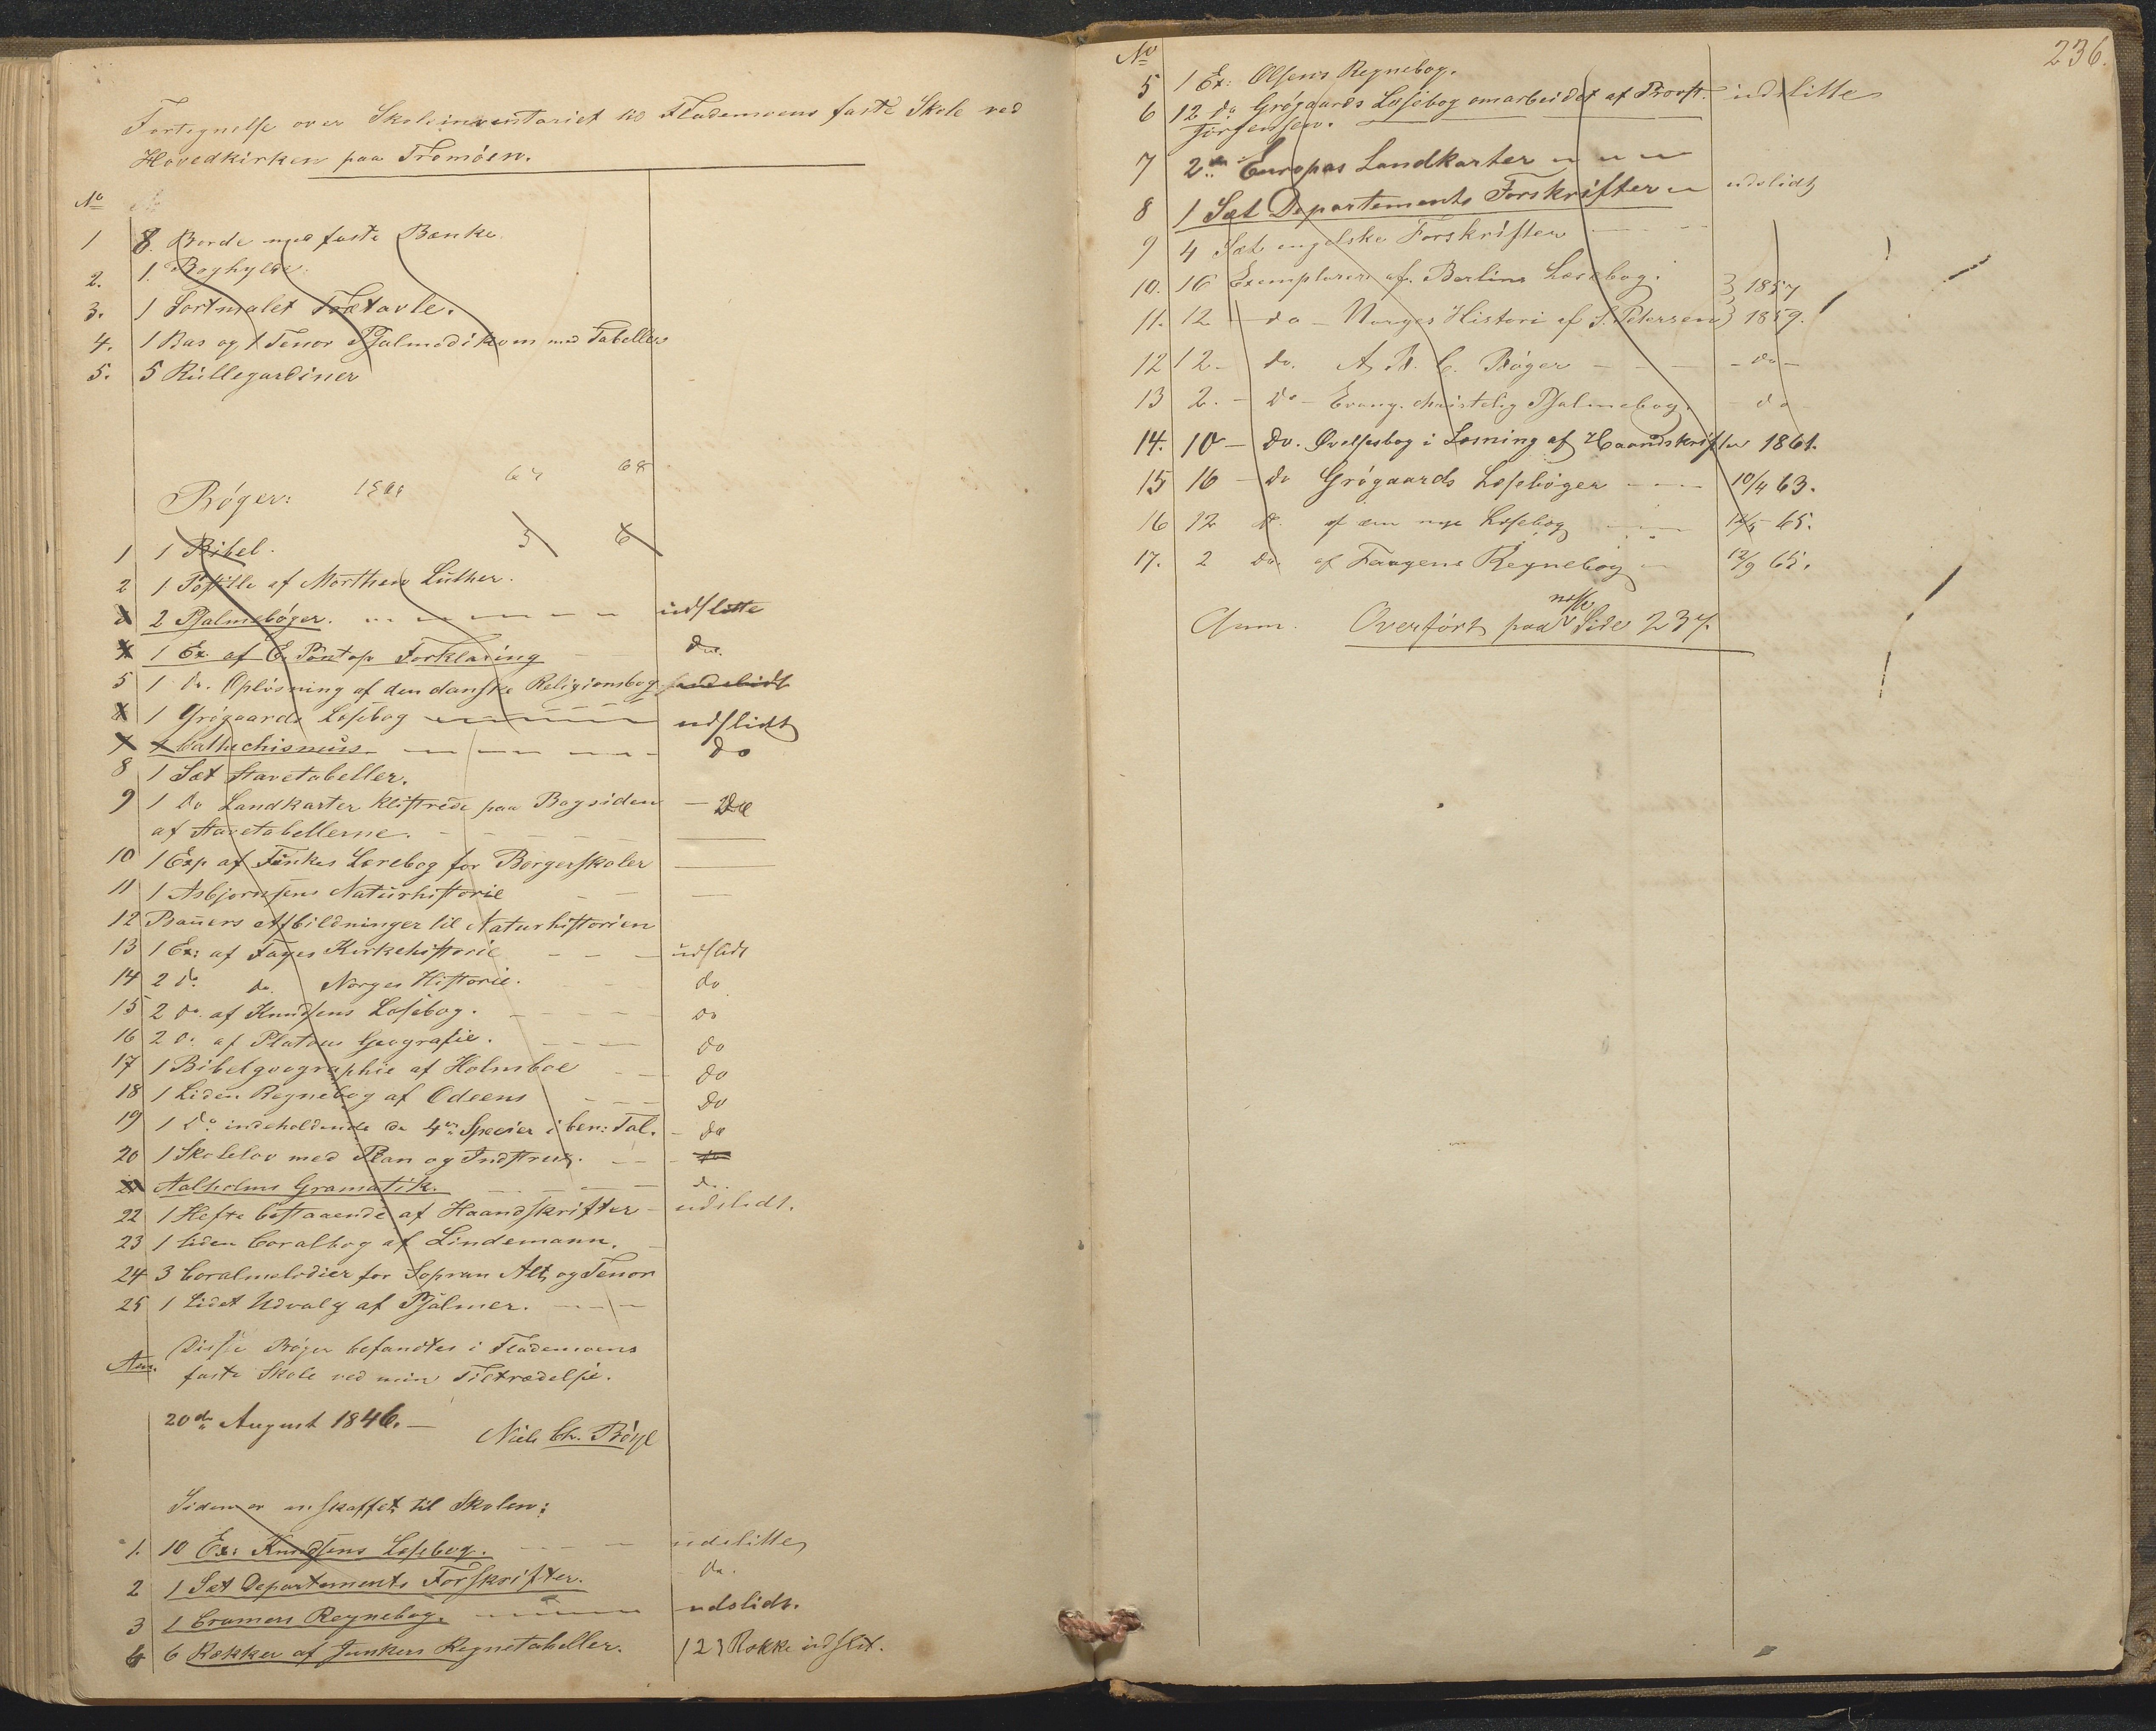 Fortegnelse over Skoleinventariet ved Flademoens faste Skole ved
Hovedkirken paa Tromöen.
No
1 8. Borde med faste Bænke
2. 1. Boghylde.
3. 1 Sortmalet Trætavle.
4. 1 Bas og 1 Tenor Psalmodikom med Tabeller
5. 5 Rullegardiner
Bøger: 67 68
1 1 Bibel. 5 6
2 1 Postille af Morthen Luther.
3 2 Psalmebøger. udslitte
4 1 Ex af E. Pontop Forklaring do.
5 1 do. Opløsning af den danske Religionsbog udslidt
6 1 Grøgaards Læsebog udslidt
7 Cathechismus do
8 1 Sæt Stavetabeller.
9 1 do Landkarter klistrede paa Bagsiden
af Stavetabellerne.
10 1 Exp af Finkes Lærebog for Borgerskoler
11 1 Asbjørnsens Naturhistorie
12 Bauers Afbildninger til Naturhistorien
13 1 Ex: af Fayes Kirkehistorie udslidt
14 2 do. do. Norges Historie. do
15 2 do. af Knudsens Læsebog. do
16 2 do. af Platous Geografie. do
17 1 Bibelgeographie af Holmboe do
18 1 Liden Regnebog af Odeens do
19 1 do. indeholdende de 4re Specier i ben: Tal. do
20 1 Skolelov med Plan og Instrux. do
21 Aalholms Gramatik. do.
22 1 Hefte bestaaende af Haandskrifter udslidt.
23 1 liden Coralbog af Lindemann.
24 3 Coralmelodier for Sopran Alt, og Tenor
25 1 Lidet Udvalg af Psalmer.
Disse Bøger befandtes i Flademoens
Anm. faste Skole ved min Tiltrædelse.
20de August 1846.
Niels Chr. Bøye
Siden er anskaffet til Skolen:
1. 10 Ex: Knudsens Læsebog. udslitte
2 1 Sæt Departements Forskrifter. do.
3 1 Cramers Regnebog. udslidt.
4 6 Rækker af Junkers Regnetabeller. 123 Række udslit.
236.
No
5 1 Ex: Olsens Regnebog.
6 12 do Grøgaards Læsebog omarbeidet af Provst. udslitte
Jørgensen.
7 2 Europas Landkarter
8 1 Sæt Departements Forskrifter udslidt
9 4 Sæt engelske Forskrifter
10. 16 Exemplarer af Berlins Læsebog. 1857
11. 12 do Norges Histori af S. Petersen 1859.
12 12 do. A. B. C. Bøger do
13 2. do Evang. christelig Psalmebog. do
14. 10 do. Øvelsesbog i Læsning af Haandskrifter 1861.
15 16 do Grøgaards Læsebøger 10/4 63.
16 12 do. af den nye Læsebog 12/5 65.
17. 2 do. af Faagens Regnebog 12/9 65.
næste
Anm. Overført paa Side 237.